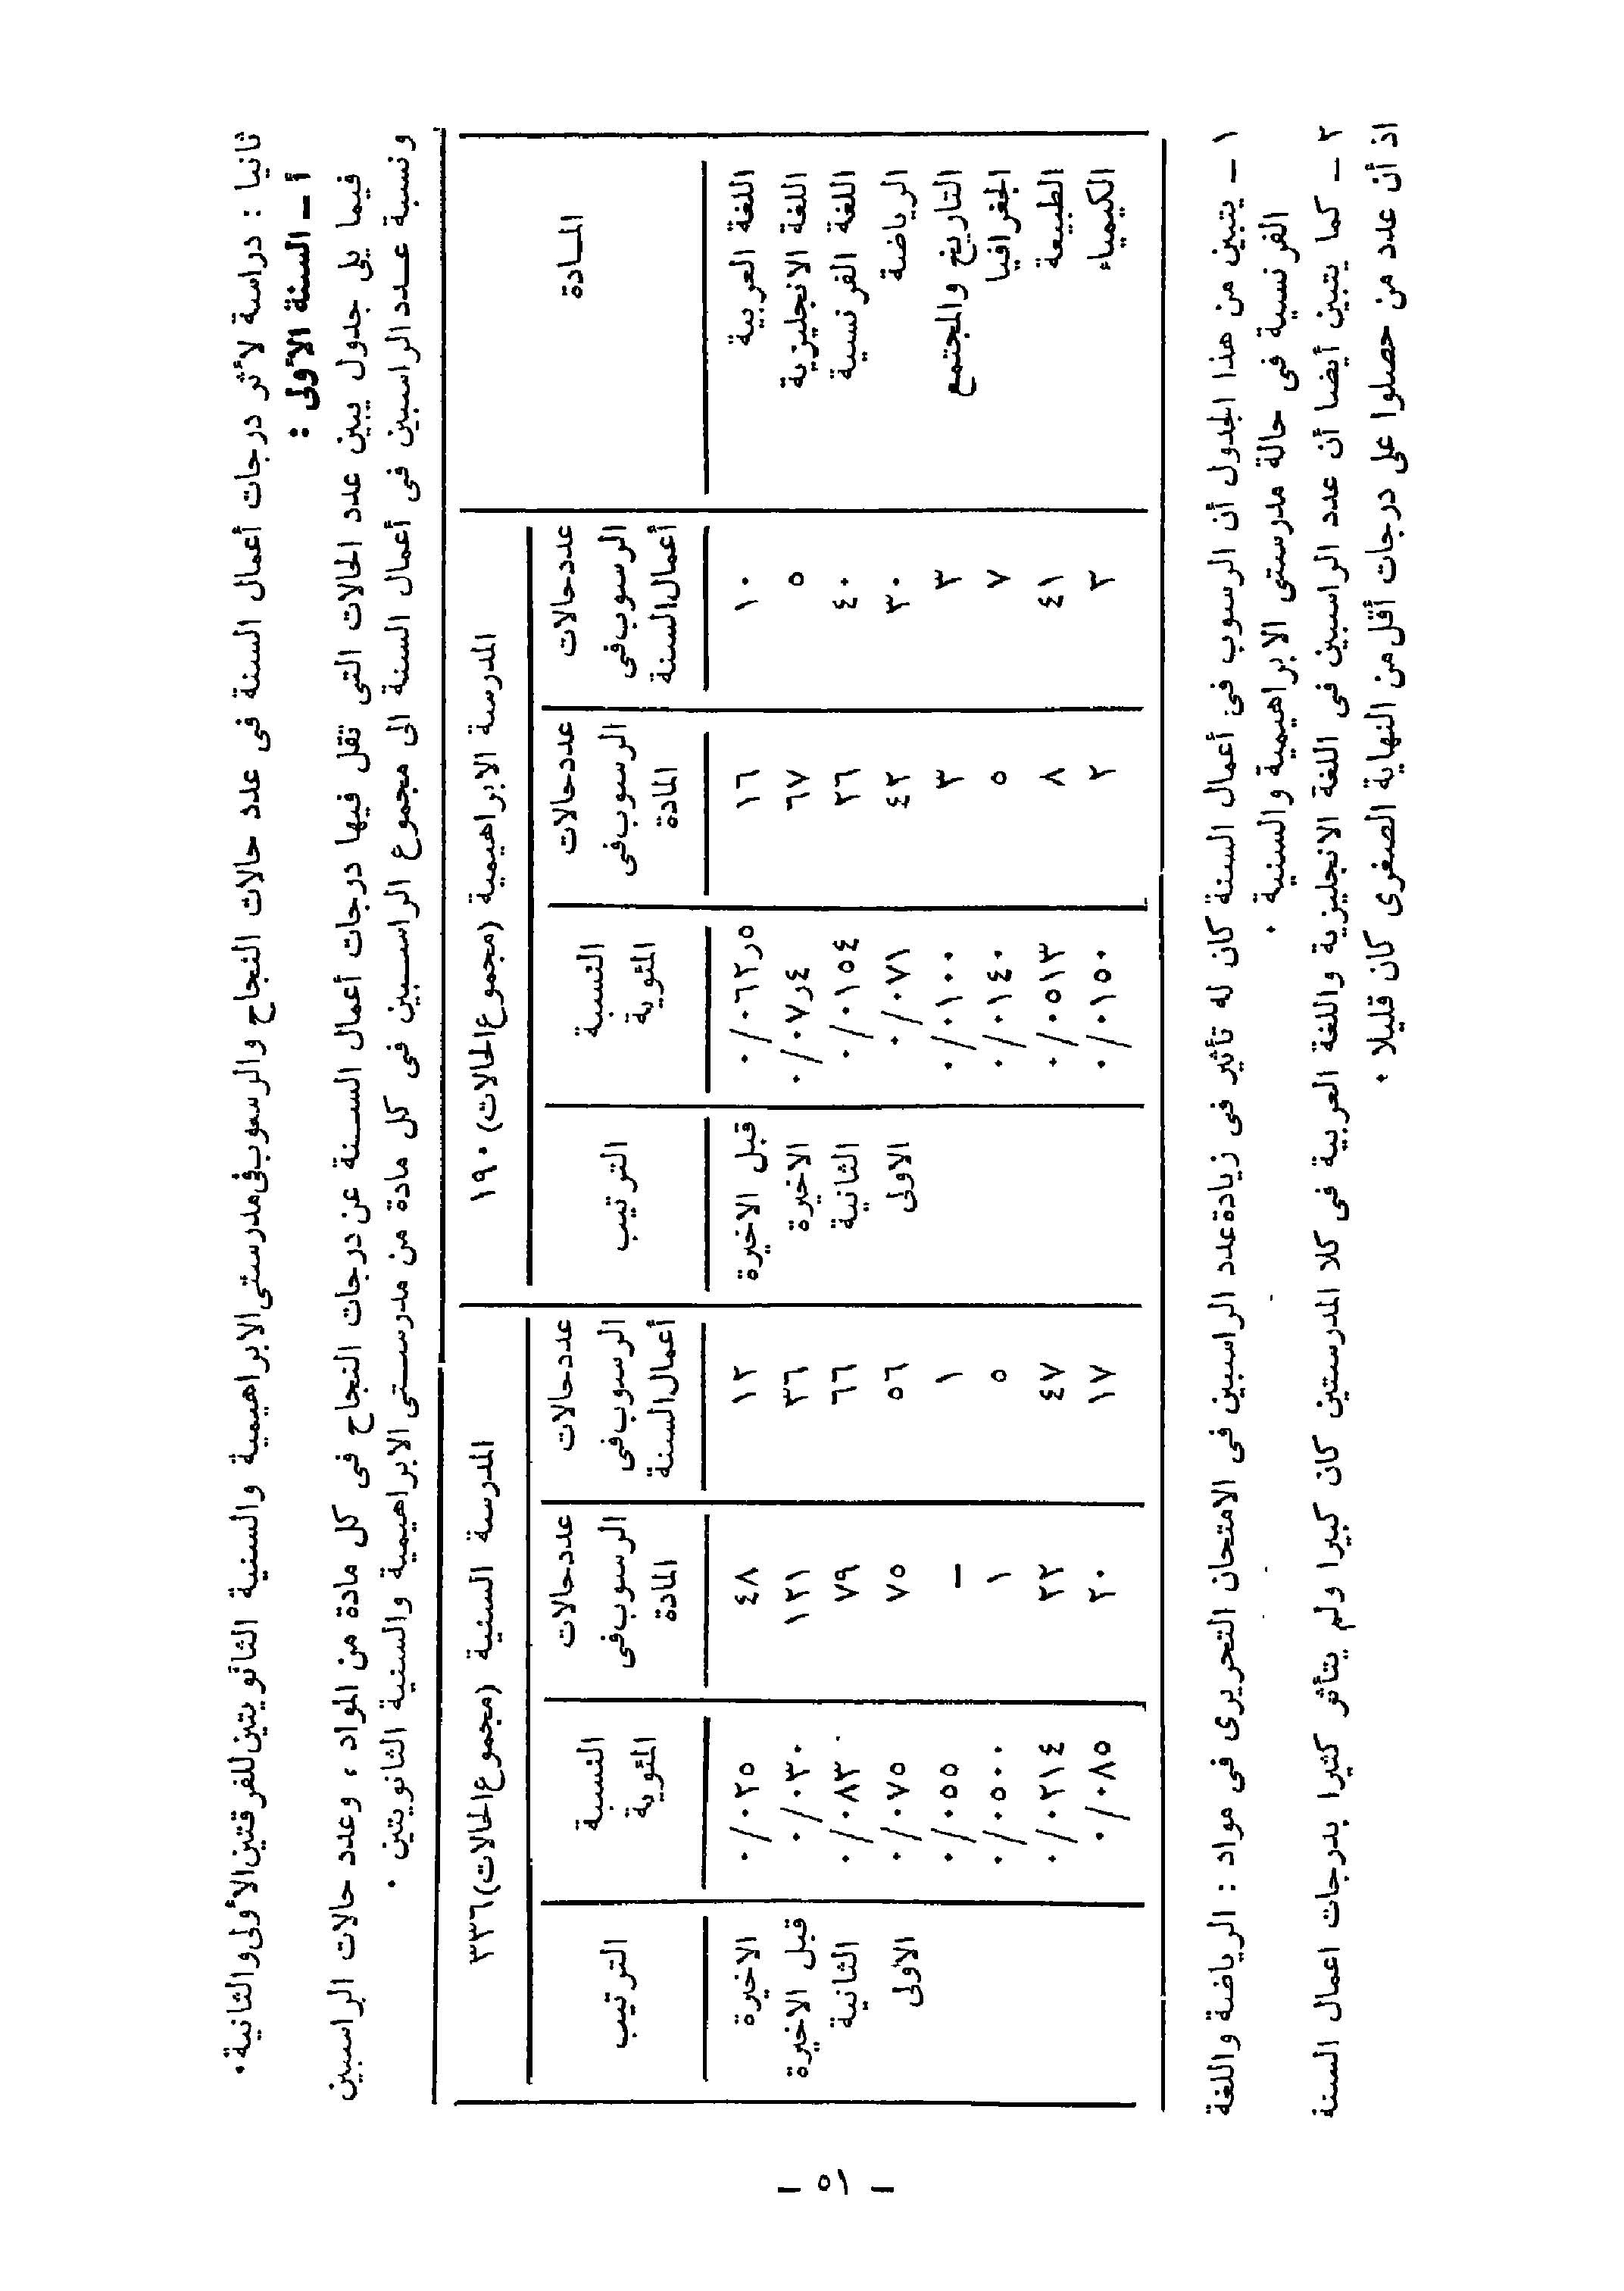 ثانيا : دراسة لأثر درجات أعمال السنة فى عدد حالات النجاح والرسوب فى مدرستى الابراهيمية والسنية الثانويتين للفرقتين الأولى والثانية ٠
أ ــ السنة الأولى :
فيما يلى جدول يبين عدد الحالات التى تقل فيها درجات أعمال السنة عن درجات النجاح فى كل مادة من المواد ، وعدد حالات الراسبين
ونسبة عدد الراسبين فى أعمال السنة الى مجموع الراسبين فى كل مادة من مدرستى الابراهيمية والسنية الثانويتين ٠
المدرسة الابراهيمية (مجموع الحالات) ١٩٠ المدرسة السنية (مجموع الحالات) ٣٣٦
المادة عدد حالات الرسوب فى أعمال السنة عدد حالات الرسوب فى المادة النسبة المئوية الترتيب عدد حالات الرسوب فى أعمال السنة عدد حالات الرسوب فى المادة النسبة المئوية الترتيب
اللغة العربية ١٠ ١٦ ٦٢ر٥٠/٠ قبل الاخيرة ١٢ ٤٨ ٢٥٠/٠ الاخيرة
اللغة الانجليزية ٥ ٦٧ ٧ر٤٠/٠ الاخيرة ٣٦ ١٢١ ٣٠٠/٠ قبل الاخيرة
اللغة الفرنسية ٤٠ ٢٦ ١٥٤٠/٠ الثانية ٦٦ ٧٩ ٨٣٠/٠ الثانية
الرياضة ٣٠ ٤٢ ٧١٠/٠ الاولى ٥٦ ٧٥ ٧٥٠/٠ الأولى
التاريخ والمجتمع ٣ ٣ ١٠٠٠/٠ ١ — ٥٥٠/٠
الجغرافيا ٧ ٥ ١٤٠٠/٠ ٥ ١ ٥٠٠٠/٠
الطبيعة ٤١ ٨ ٥١٣٠/٠ ٤٧ ٢٢ ٢١٤٠/٠
الكيمياء ٣ ٢ ١٥٠٠/٠ ١٧ ٢٠ ٨٥٠/٠
١ ــ يتبين من هذا الجدول أن الرسوب فى أعمال السنة كان له تأثير فى زيادة عدد الراسبين فى الامتحان التحريرى فى مواد : الرياضة واللغة
الفرنسية فى حالة مدرستى الابراهيمية والسنية ٠
٢ ــ كما يتبين أيضا أن عدد الراسبين فى اللغة الانجليزية واللغة العربية فى كلا المدرستين كان كبيرا ولم يتأثر كثيرا بدرجات اعمال السنة
اذ أن عدد من حصلوا على درجات أقل من النهاية الصغرى كان قليلا ٠
ــ ٥١ ــ